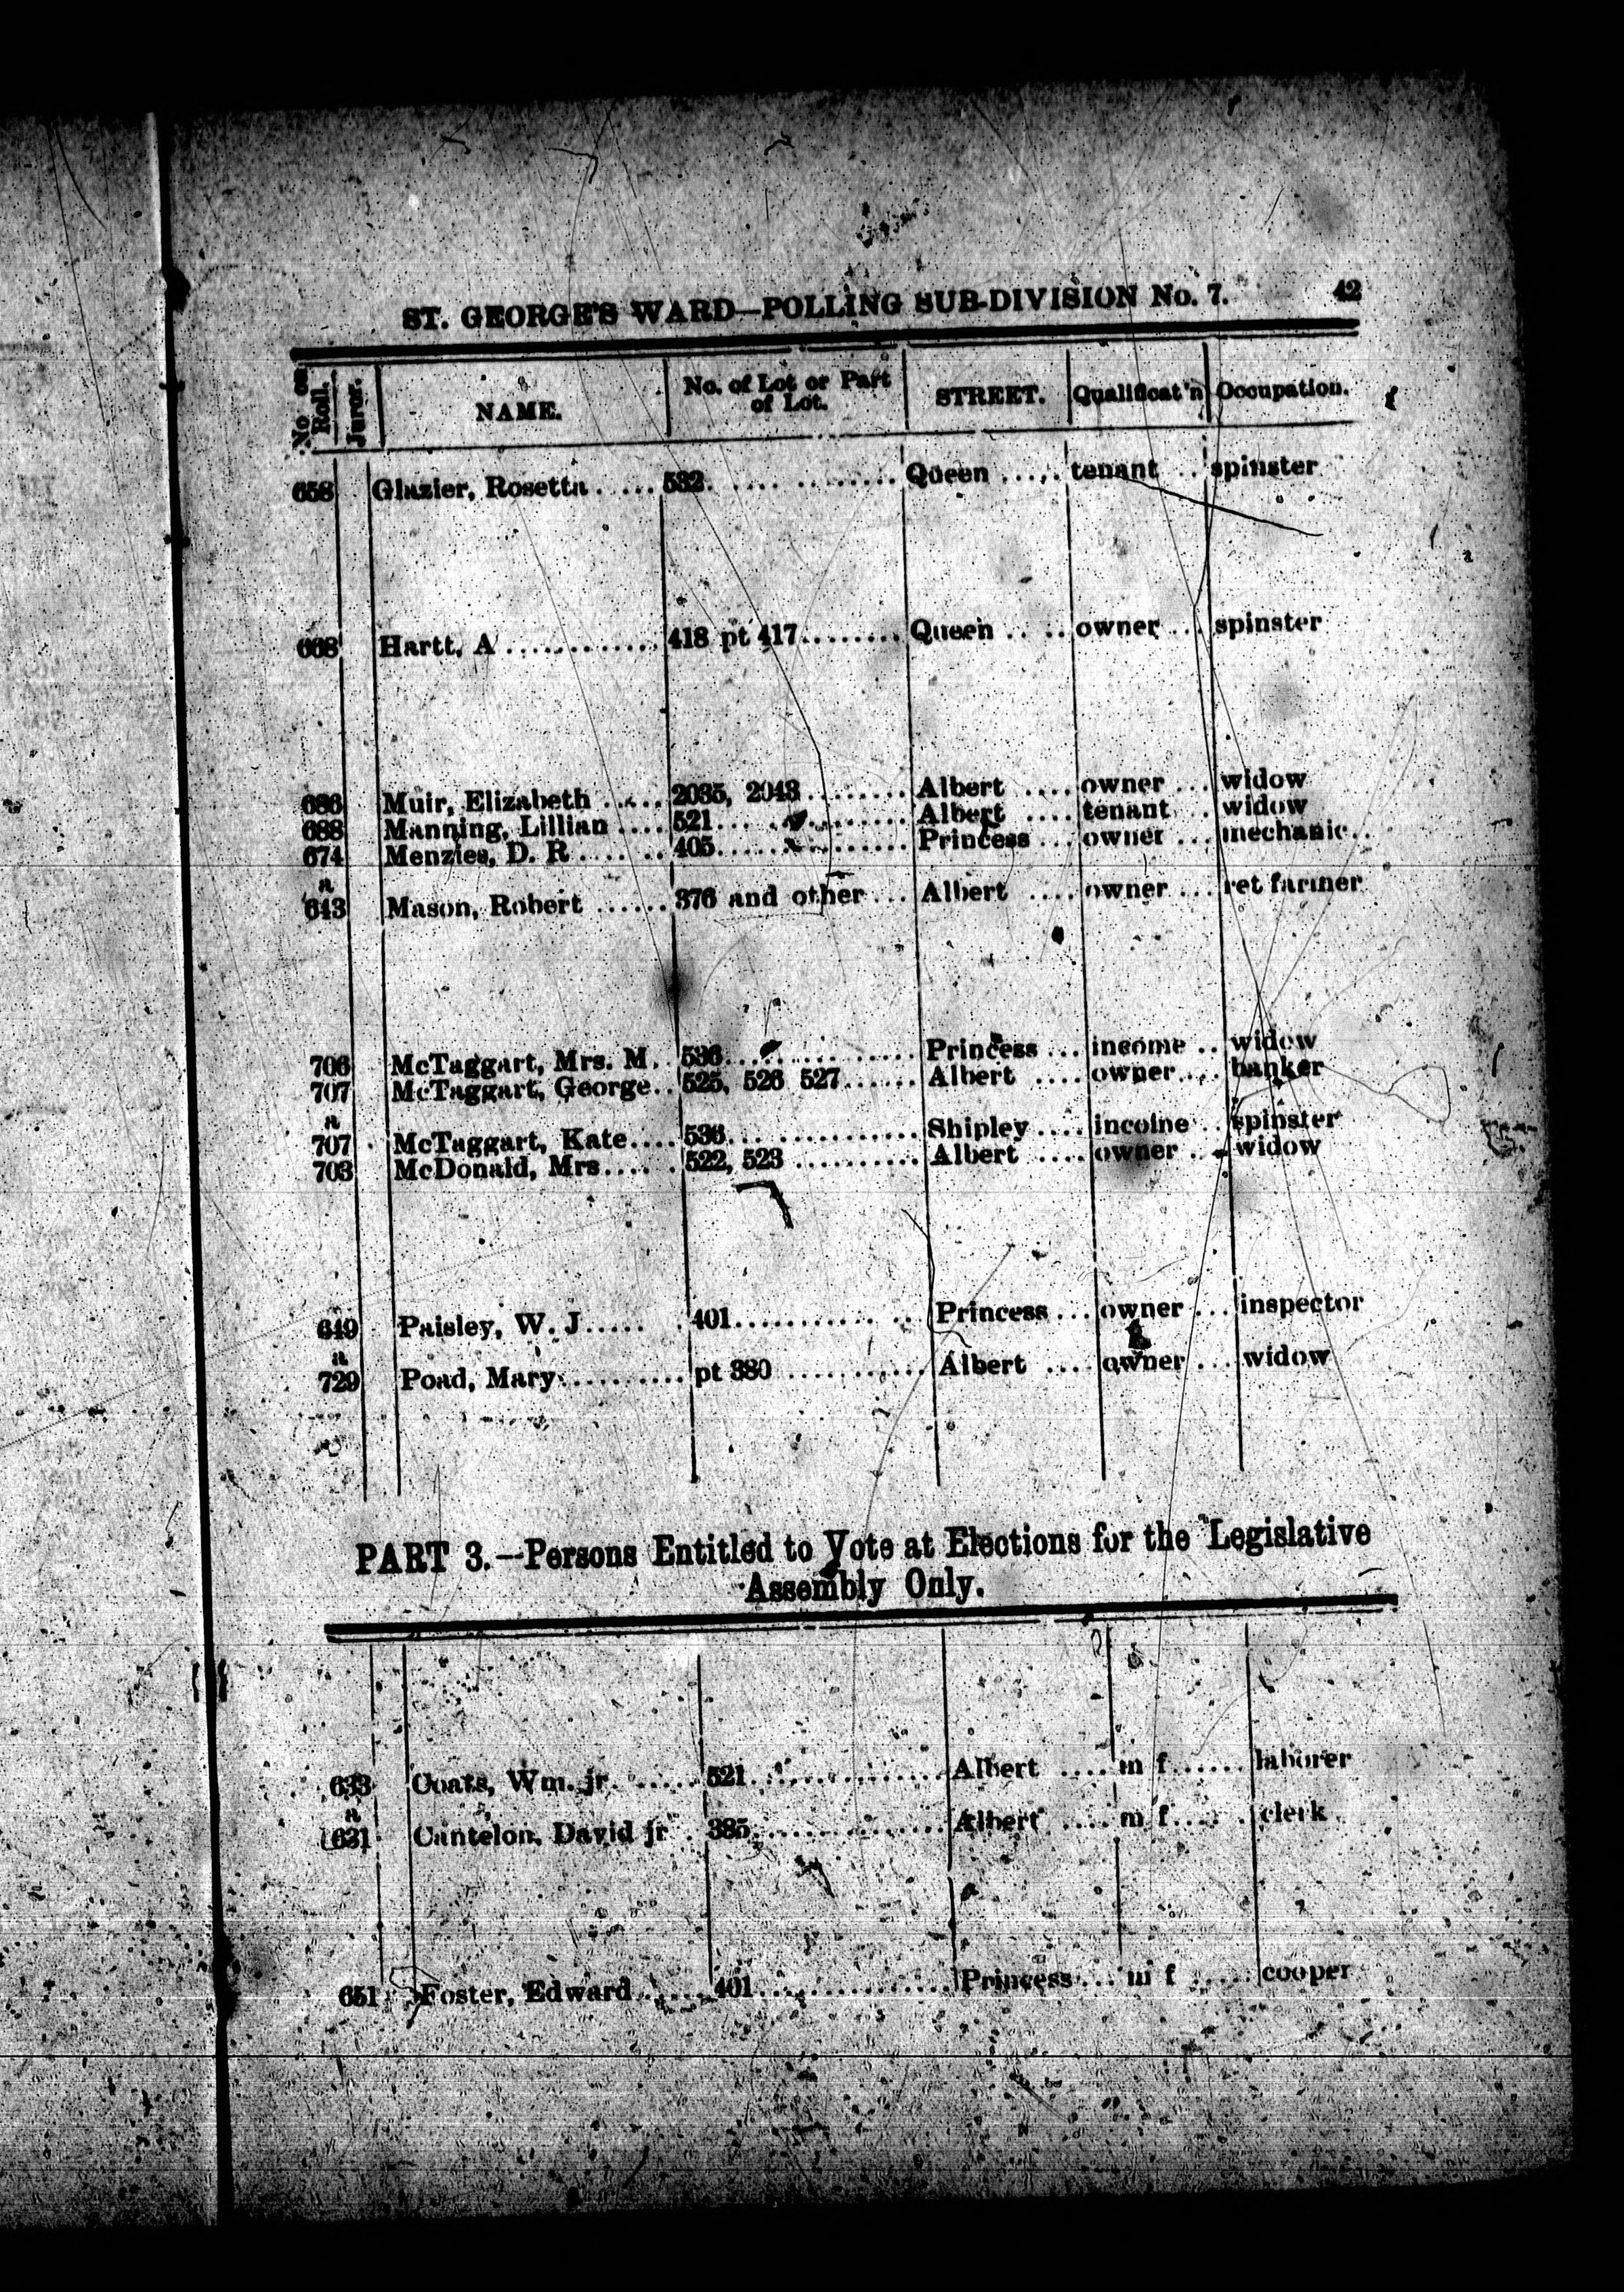 ST. GEORGE'S WARD—POLLING SUB-DIVISION No. 7. 42
No on Roll. Juror. NAME. No. of Lot or Part of Lot. STREET. Qualificat'n Occupation.
658 Glazier, Rosetta ..... 532. .... ........ Queen ..... tenant ... spinster
668 Hartt, A ............ 418 pt 417........ Queen .. .. owner ... spinster
686 Muir, Elizabeth ..... 2035, 2043 ........ Albert .... owner ... widow
688 Manning, Lillian .... 521............... Albert .... tenant ... widow
674 Menzies, D. R ....... 405............... Princess ... owner ... mechanic..
a
643 Mason, Robert ...... 376 and other ... Albert .... owner ... ret farmer
706 McTaggart, Mrs. M. . 536............... Princess ... income .. widow
707 McTaggart, George.. 525, 526 527...... Albert .... owner ... banker
a
707 McTaggart, Kate.... 536............... Shipley .... income .. spinster
703 McDonald, Mrs..... . 522, 523 .......... Albert .... owner ... widow
649 Paisley, W. J..... . 401............... Princess ... owner ... inspector
a
729 Poad, Mary.......... pt 380 ........... Albert .... owner ... widow
PART 3.—Persons Entitled to Vote at Elections for the Legislative
Assembly Only.
633 Coats, Wm. jr. ..... 521............... Albert .... m f...... laborer
a
631 Cantelon, David jr . 385............... Albert .... m f.... . clerk
651 Foster, Edward ..... 401............... Princess ... m f ..... cooper